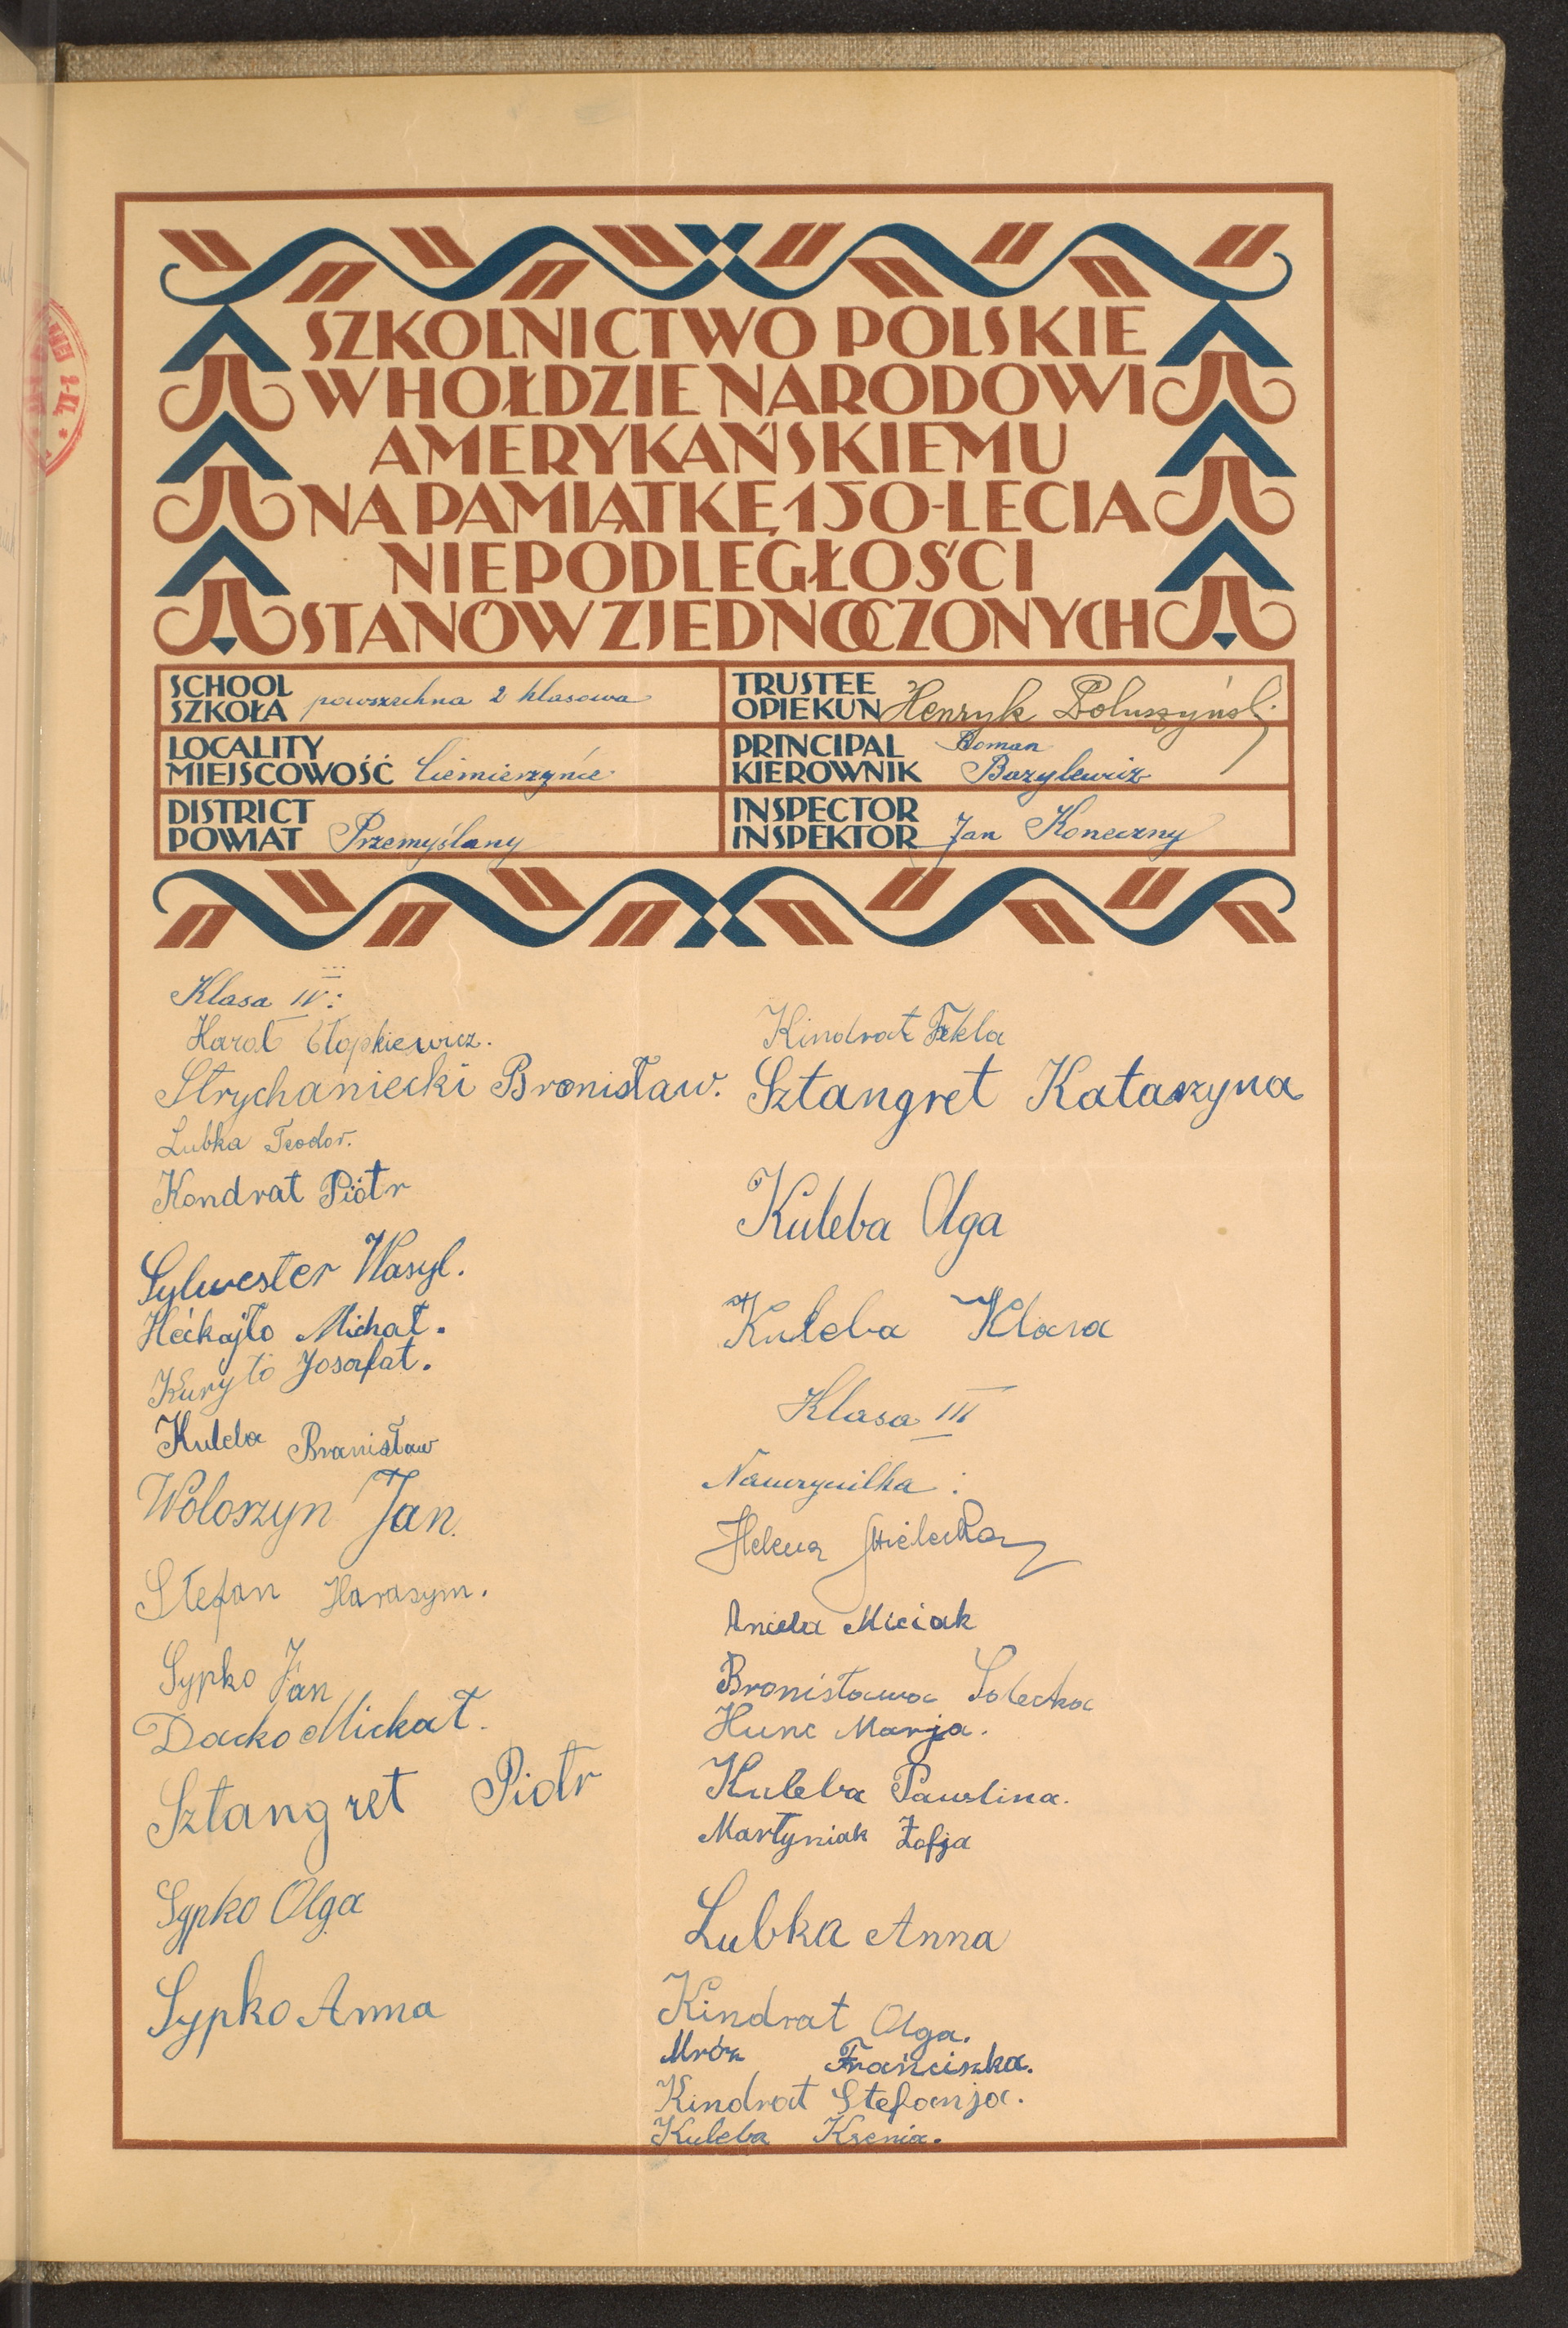 SZKOLNICTWO POLSKIE
W HOŁDZIE NARODOWI
AMERYKAŃSKIEMU
NA PAMIĄTKĘ 150-LECIA
NIEPODLEGŁOŚCI
STANÓW ZJEDNOCZONYCH
SCHOOL
SZKOŁA powszechna 2 klasowa
LOCALITY
MIEJSCOWOŚĆ Ciemierzyńce
DISTRICT
POWIAT Przemyślany
TRUSTEE
OPIEKUN Henryk
PRINCIPAL Roman
KIEROWNIK Bazylewicz
INSPECTOR
INSPEKTOR Jan Koneczny
Klasa IV:
Karol Człapkiewicz.
Strychaniecki Bronisław.
Lubka Teodor.
Kondrat Piotr
Sylwester Wasyl.
Hećkajło Michał.
Kuryło Josafat.
Kuleba Bronisław
Wołoszyn Jan.
Stefan Harasym.
Sypko Jan
Dacko Michał.
Sztangret Piotr
Sypko Olga
Sypko Anna
Kindrat Tekla
Sztangret Katarzyna
Kuleba Olga
Kuleba Klara
Klasa III
Nauczycielka:
Helena
Aniela Miciak
Bronisława Solecka
Hunc Marja.
Kuleba Paulina.
Martyniak Zofja
Lubka Anna
Kindrat Olga.
Mróz Franciszka.
Kindrat Stefanja.
Kuleba Ksenia.